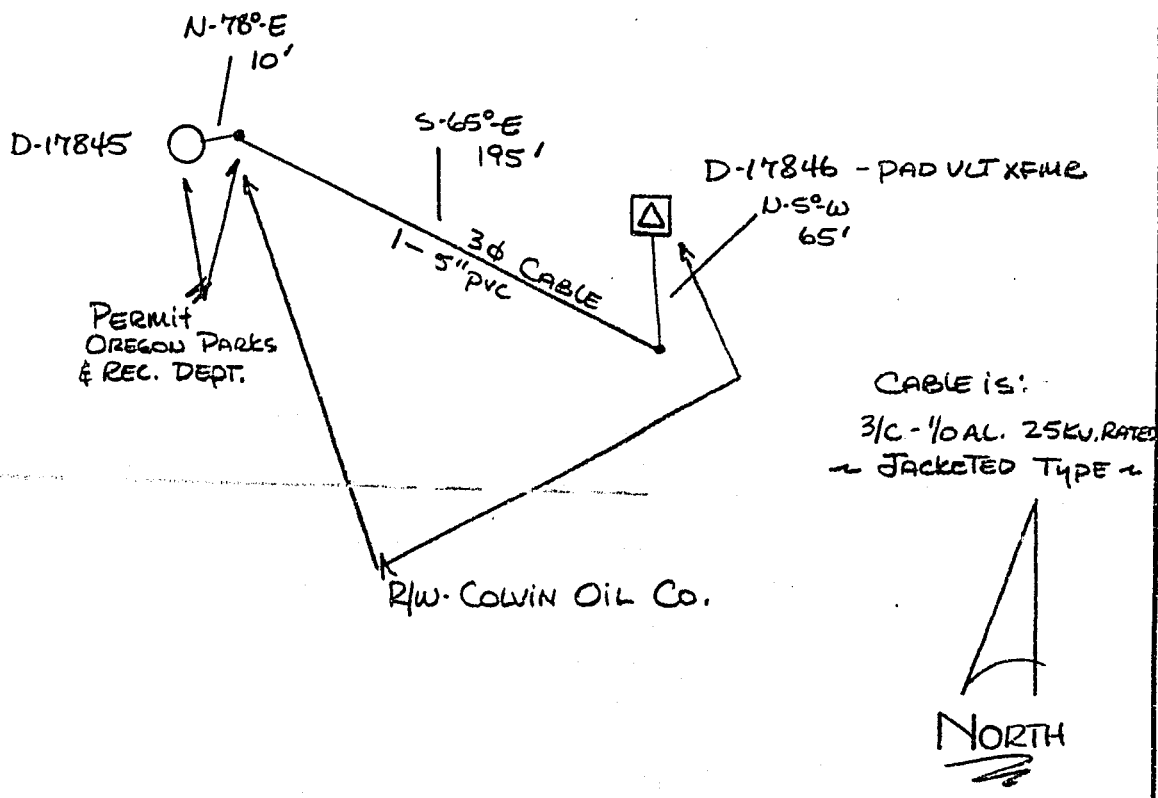 N-78°-E
10'
D-17845
S-65°-E
195'
D-17846 - PAD VLT XFMR
N-5°-W
65'
3ϕ CABLE
1- 5" PVC
PERMIT
OREGON PARKS
& REC. DEPT.
CABLE is:
3/C - 1/0 AL. 25KV. RATED
~ JACKETED TYPE ~
R/W - COLVIN OIL CO.
NORTH